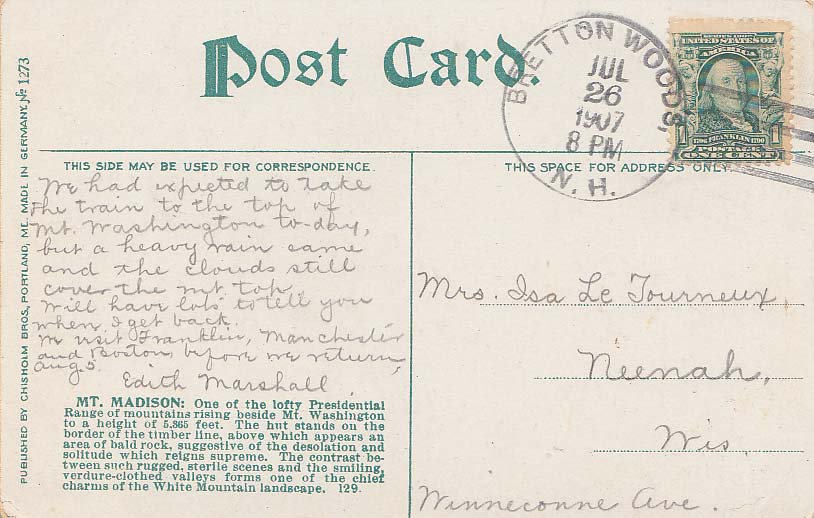 Post Card.
BRETTON WOODS,
JUL
26
1907
8 PM
N. H.
UNITED STATES OF
AMERICA
1 1
FRANKLIN
POSTAGE
ONE CENT
PUBLISHED BY CHISHOLM BROS., PORTLAND, ME. MADE IN GERMANY. No 1273
THIS SIDE MAY BE USED FOR CORRESPONDENCE.
We had expected to take
the train to the top of
Mt. Washington to-day,
but a heavy rain came
and the clouds still
cover the mt. top.
Will have lots to tell you
when I get back.
We visit Franklin, Manchester
and Boston before we return,
Aug. 5.
Edith Marshall
MT. MADISON: One of the lofty Presidential
Range of mountains rising beside Mt. Washington
to a height of 5,365 feet. The hut stands on the
border of the timber line, above which appears an
area of bald rock, suggestive of the desolation and
solitude which reigns supreme. The contrast be-
tween such rugged, sterile scenes and the smiling,
verdure-clothed valleys forms one of the chief
charms of the White Mountain landscape. 129.
THIS SPACE FOR ADDRESS ONLY.
Mrs. Isa Le Tourneux,
Neenah,
Wis.
Winneconne Ave.